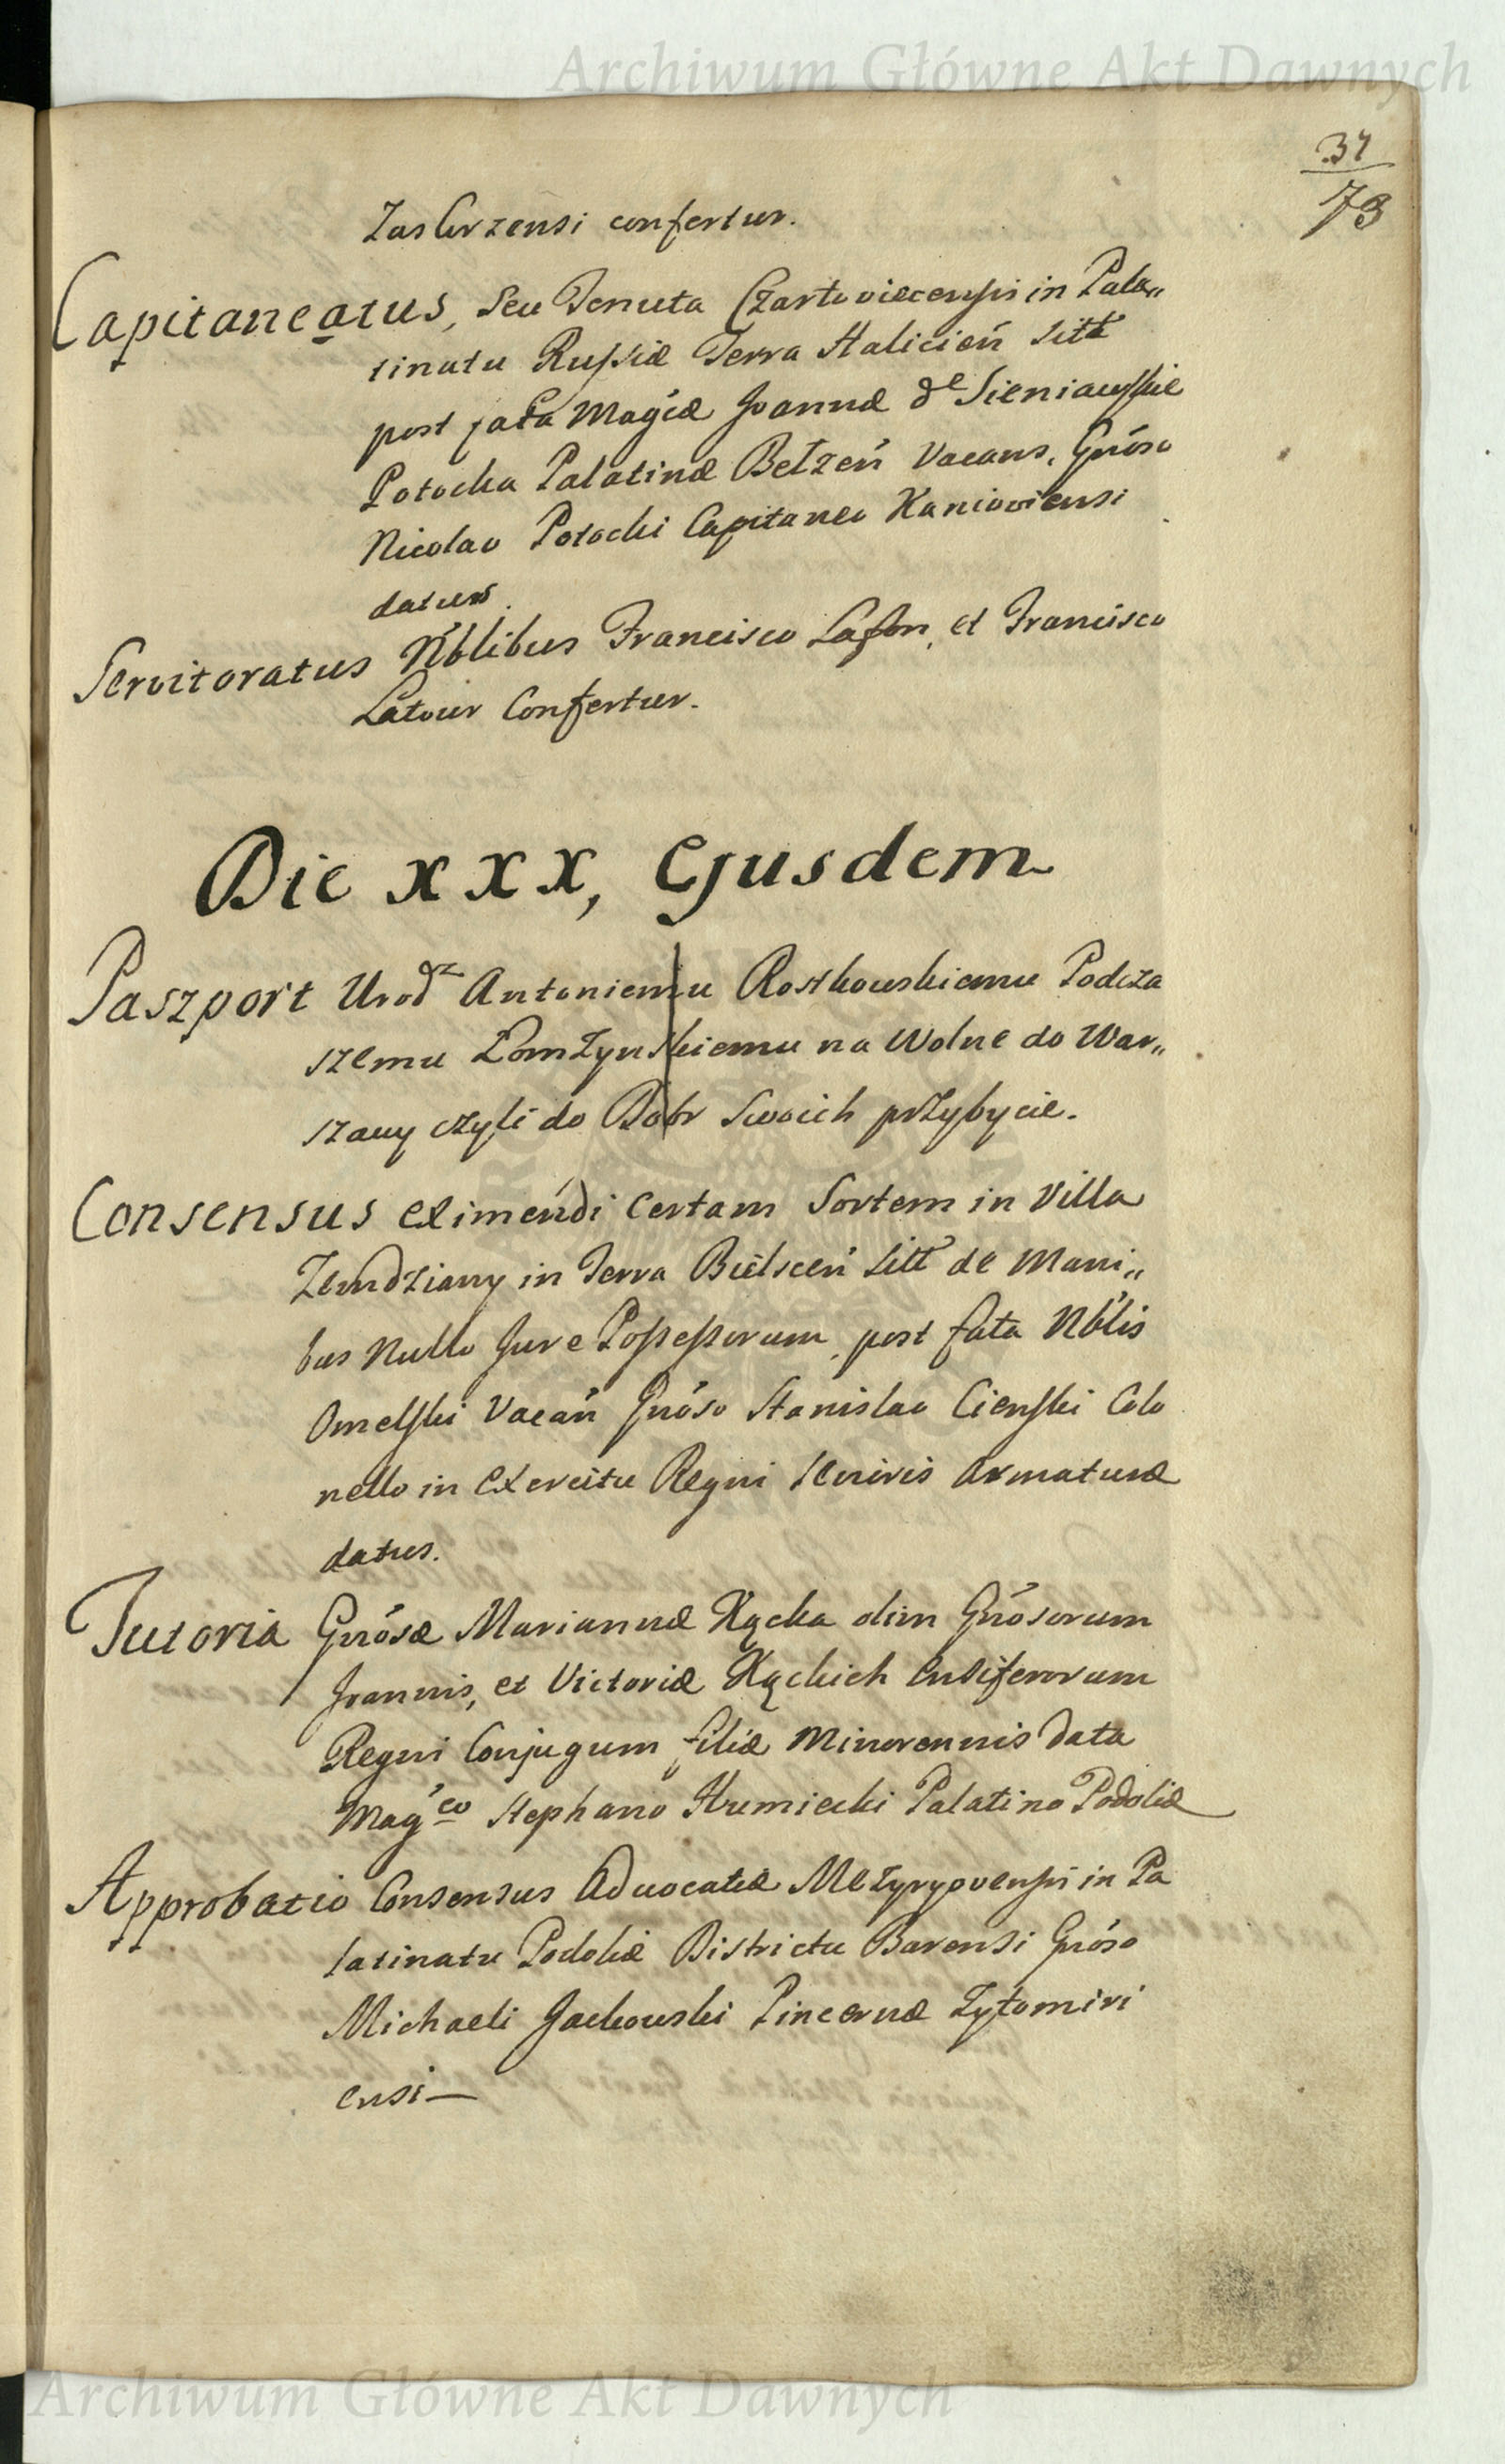 Archiwum Główne Akt Dawnych
37
73
confertur.
Capitaneatus, seu Tenuta Czartoviecensis in Pala„
tinatu Russiæ Terra Halicień sitt
post fata Magcæ Joannæ de Sieniawskie
Potocka Palatinæ Bełzeń Vacans, Gnóso
Nicolao Potocki Capitaneo Kanioviensi
datur.
Servitoratus Nblibus Francisco Lafon, et Francisco
Latour Confertur.
Die XXX, Ejusdem
Paszport Urodz Antoniemu Rostkowskiemu Podcza
szemu Łomżynskiemu na Wolne do War„
szawy czyli do Dóbr Swoich przybycie.
Consensus eximendi certam Sortem in Villa
in Terra Bielsceń sitt de Mani„
bus Nullo Jure Possessorum, post fata Nblis
Omelski Vacań Gnóso Stanislao Cienski Colo
nello in Exercitu Regni levioris armaturæ
datus.
Tutoria Gnósæ Mariannæ Kącka olim Gnósorum
Joannis, et Victoriæ Kąckich Ensiferorum
Regni Conjugum filiæ Minorennis data
Magco Stephano Humiecki Palatino Podoliæ
Approbatio Consensus Advocatiæ Meżyryovensis in Pa
latinatu Podoliæ Districtu Barensi Gnóso
Michaeli Jackowski Pincernæ Zytomiri
ensi—
Archiwum Główne Akt Dawnych